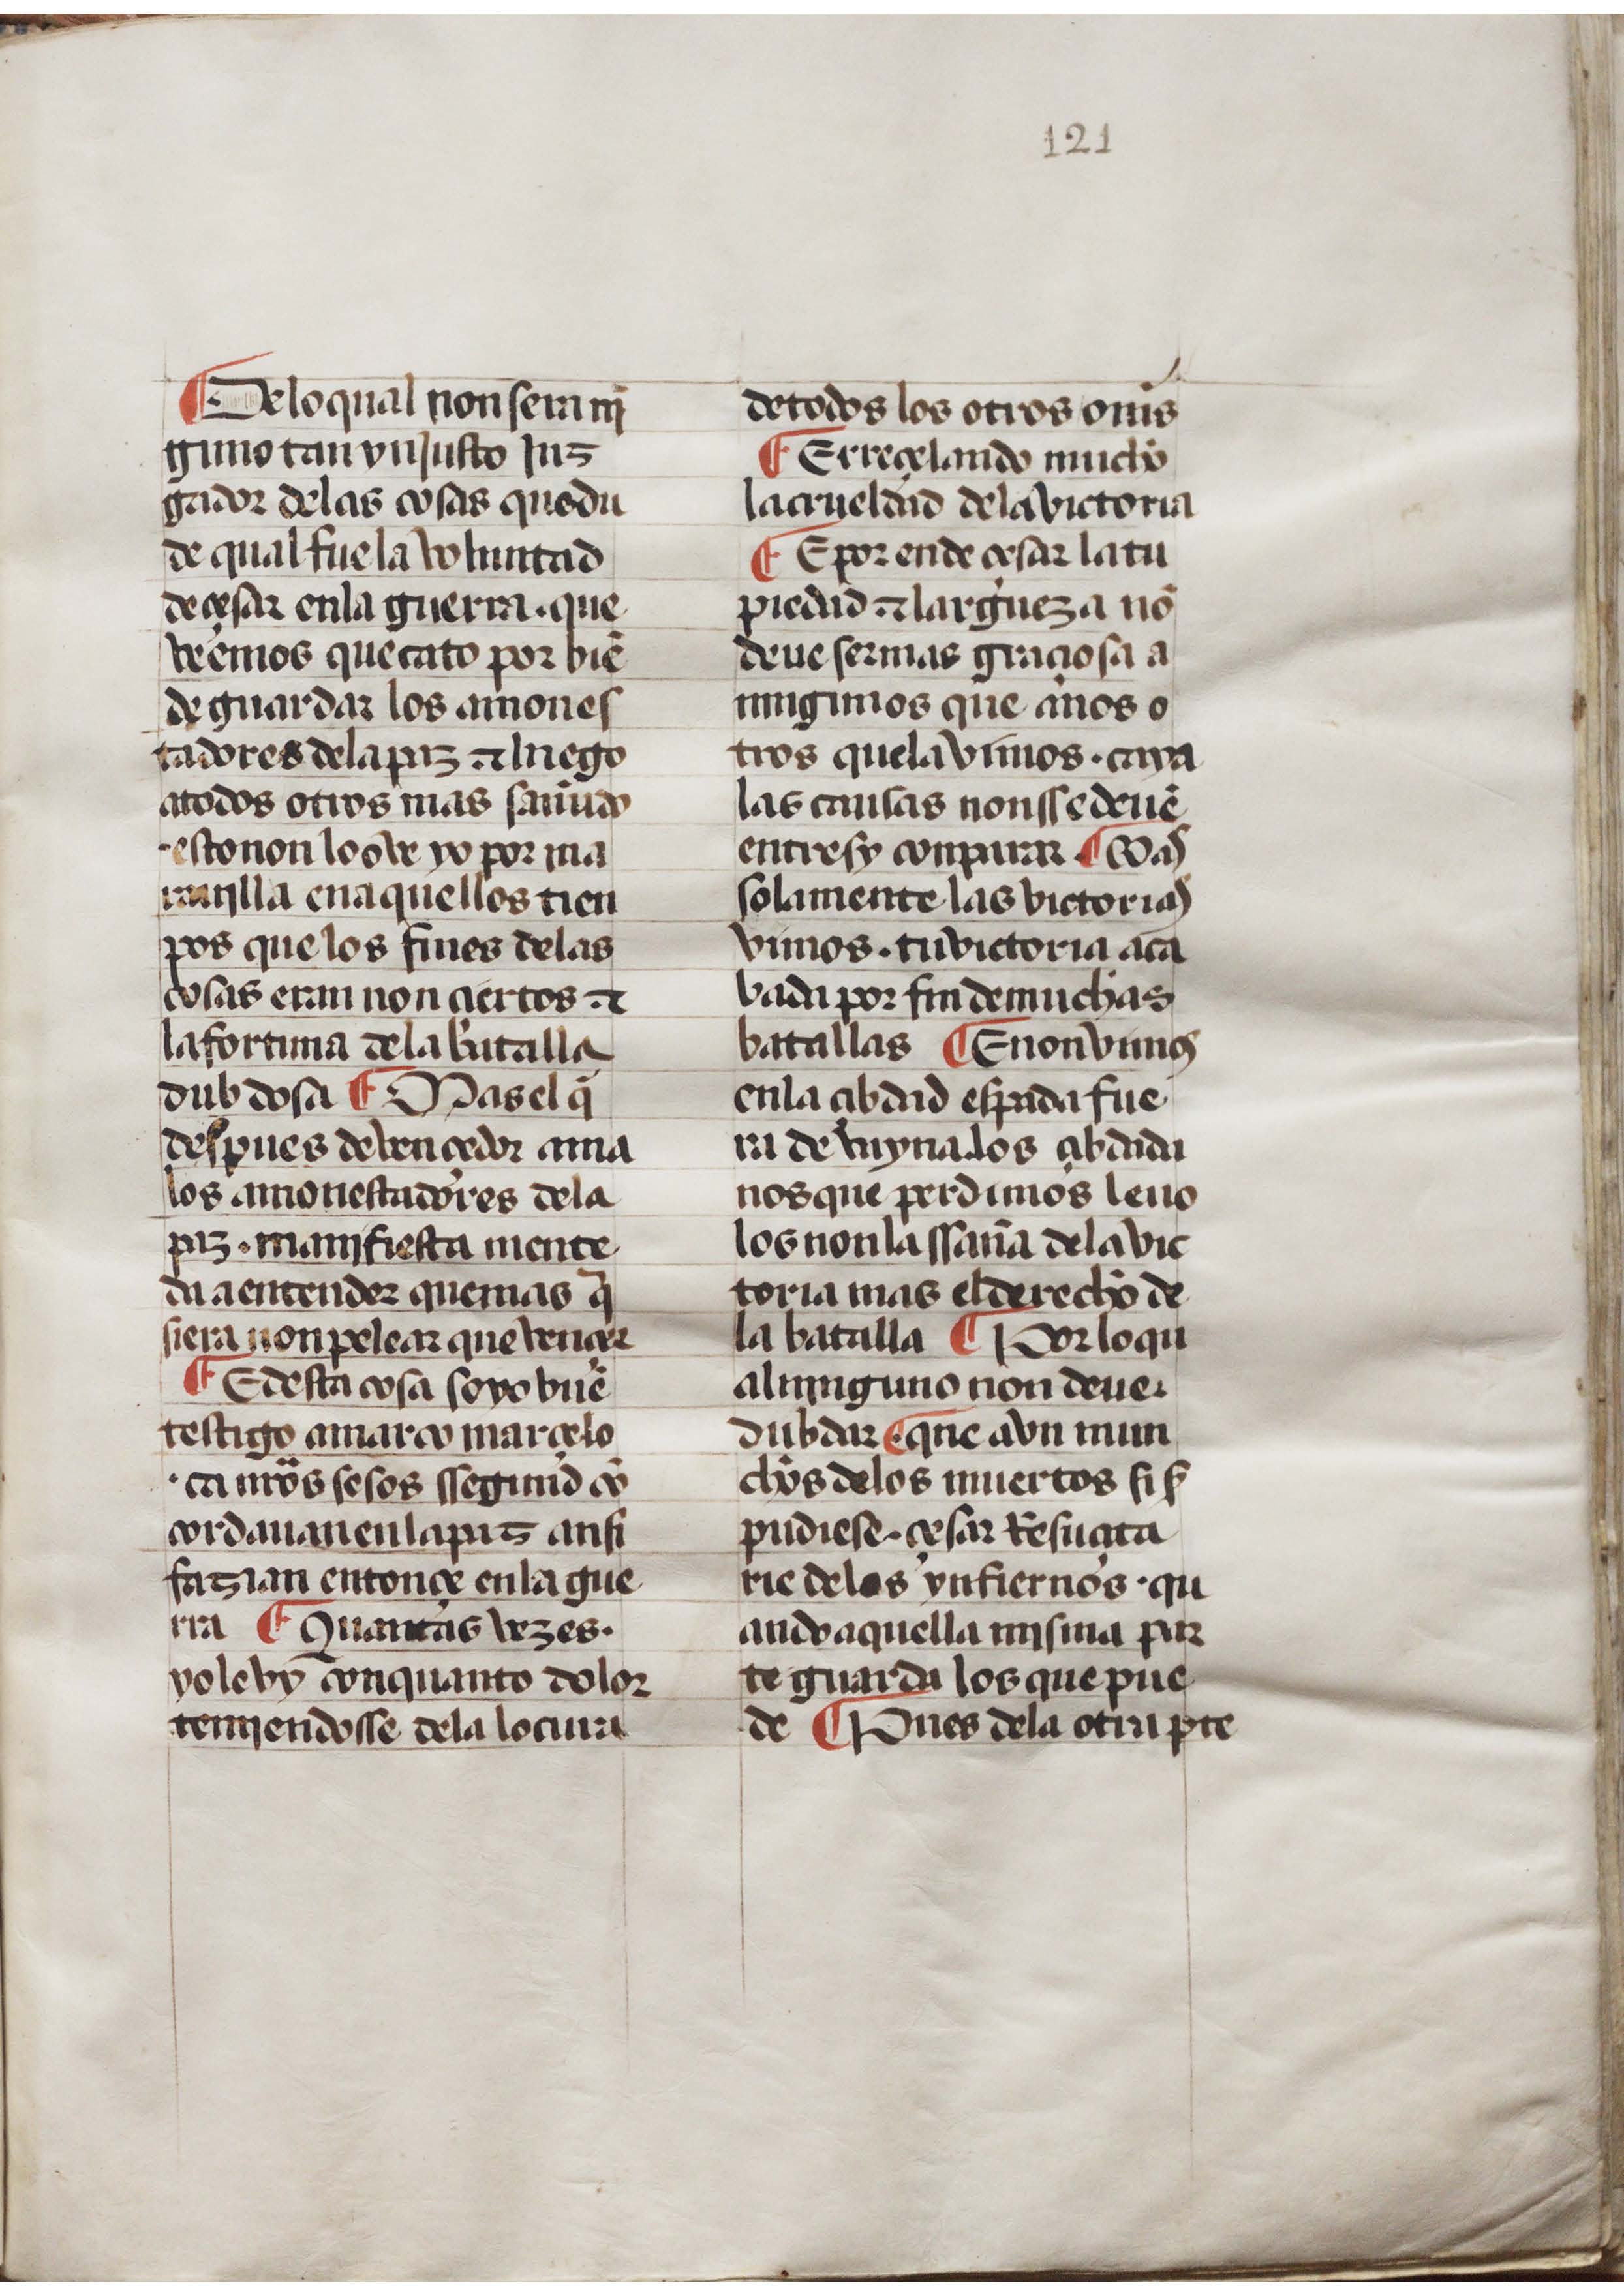 121
¶ De lo qual non sera nj̄
guno tan vnjusto Juz
gador delas cosas que du
de qual fue la voluntad
de çesar enla guerra . que
veemos que cato por biē
de guardar los amones
tadores dela paz ⁊ luego
atodos otros mas sañudo
esto non lo ove yo por ma
rauylla en aquellos tien
pos que los fines delas
cosas eran non çiertos ⁊
la fortuna dela batalla
dubdosa ¶ Mas el q̄
despues de vençedor ama
los amonestadores dela
paz . manjfiesta mente
da a entender que mas q̄
siera non pelear que vençer
¶ E desta cosa so yo buē
testigo a marco marçelo
. ca nr̄os sesos ssegund cō
cordauan enla paz ansi
fazian entonçe enla gue
rra ¶ Quantas vezes .
yo le vy con quanto dolor
temjendosse dela locura
de todos los otros om̄s
¶ E rreçelando mucho
la crueldad dela victoria
¶ E por ende çesar la tu
piedad ⁊ largueza nō
deue ser mas graçiosa a
ningunos que a nos o
tros que la vimos . cuya
las causas non sse deuē
entre sy conparar . ¶ Mas
sola mente las victorias
vimos . tu victoria aca
bada por fin de muchas
batallas ¶ E non vimos
enla çibdad espada fue
ra de vayna . los çibdada
nos que perdimos leuo
los non la ssaña dela vic
toria mas el derecho de
la batalla ¶ Por lo qu
al njnguno non deue .
dubdar ¶ que avn mun
chos delos muertos si s̄
pudiese . çesar Resuçita
rie delos ynfiernos . qu
ando aquella mjsma par
te guarda los que pue
de ¶ Pues dela otra pte